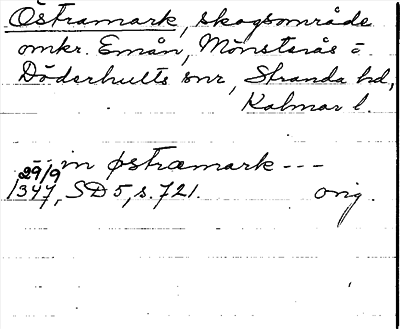 Östramark, skogsområde
omkr. Emån, Mönsterås o.
Döderhults snr, Stranda hd,
Kalmar l.
--- in østræmark ---
29/9
1347, SD 5, s. 721. orig.